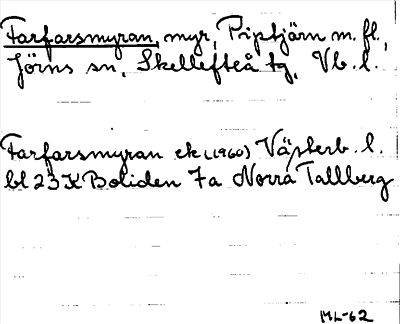 Farfarsmyran, myr, Piptjärn m. fl.,
Jörns sn, Skellefteå tg, Vb. l.
Farfarsmyran ek (1960) Västerb. l.
bl 23K Boliden 7a Norra Tallberg
ML-62